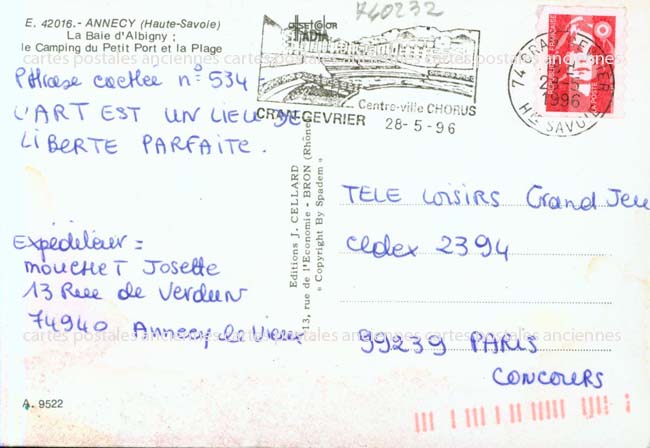 E. 42016.- ANNECY (Haute-Savoie)
La Baie d'Albigny ;
le Camping du Petit Port et la Plage
740232
Phrase cachée n° 534 =
L'ART EST UN LIEU DE
LIBERTE PARFAITE.
Centre-ville CHORUS
CRAN GEVRIER
28-5-96
74 CRAN GEVRIER
1996
Hte SAVOIE
Editions J. CELLARD
13, rue de l'Economie - BRON (Rhône)
« Copyright By Spadem »
TELE LOISIRS Grand Jeu
Cedex 2394
99239 PARIS
CONCOURS
Expéditeur =
MOUCHET Josette
13 Rue de Verdun
74940 Annecy le Vieux
A. 9522
cartes postales anciennes cartes postales anciennes cartes postales anciennes
cartes postales anciennes cartes postales anciennes cartes postales anciennes